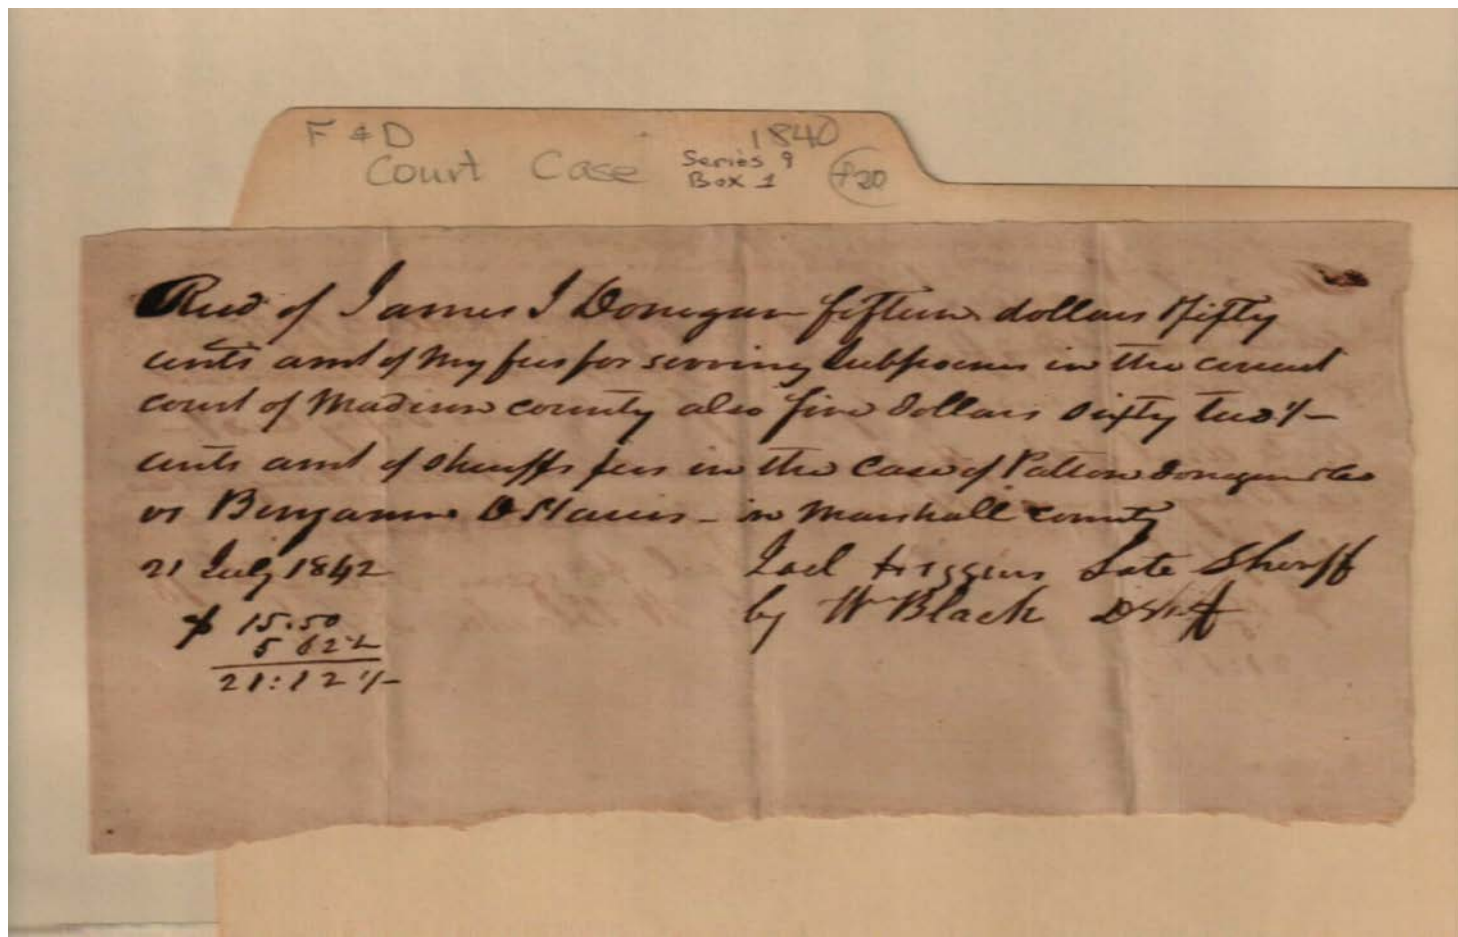 F & D 1840
Court Case Series 9
Box 1
F20
Recd of James J Donegan fifteen dollars & fifty
cents amt of my fees for serving Subpoenas in the circuit
court of Madison county also five dollars sixty two ½
cents amt of sheriffs fees in the case of Patton Donegan & Co
vs Benjamin - in Marshall county
21 July 1842 Higgins Late Sheriff
by Wm Black D Shff
$ 15.50
5 62½
21:12½